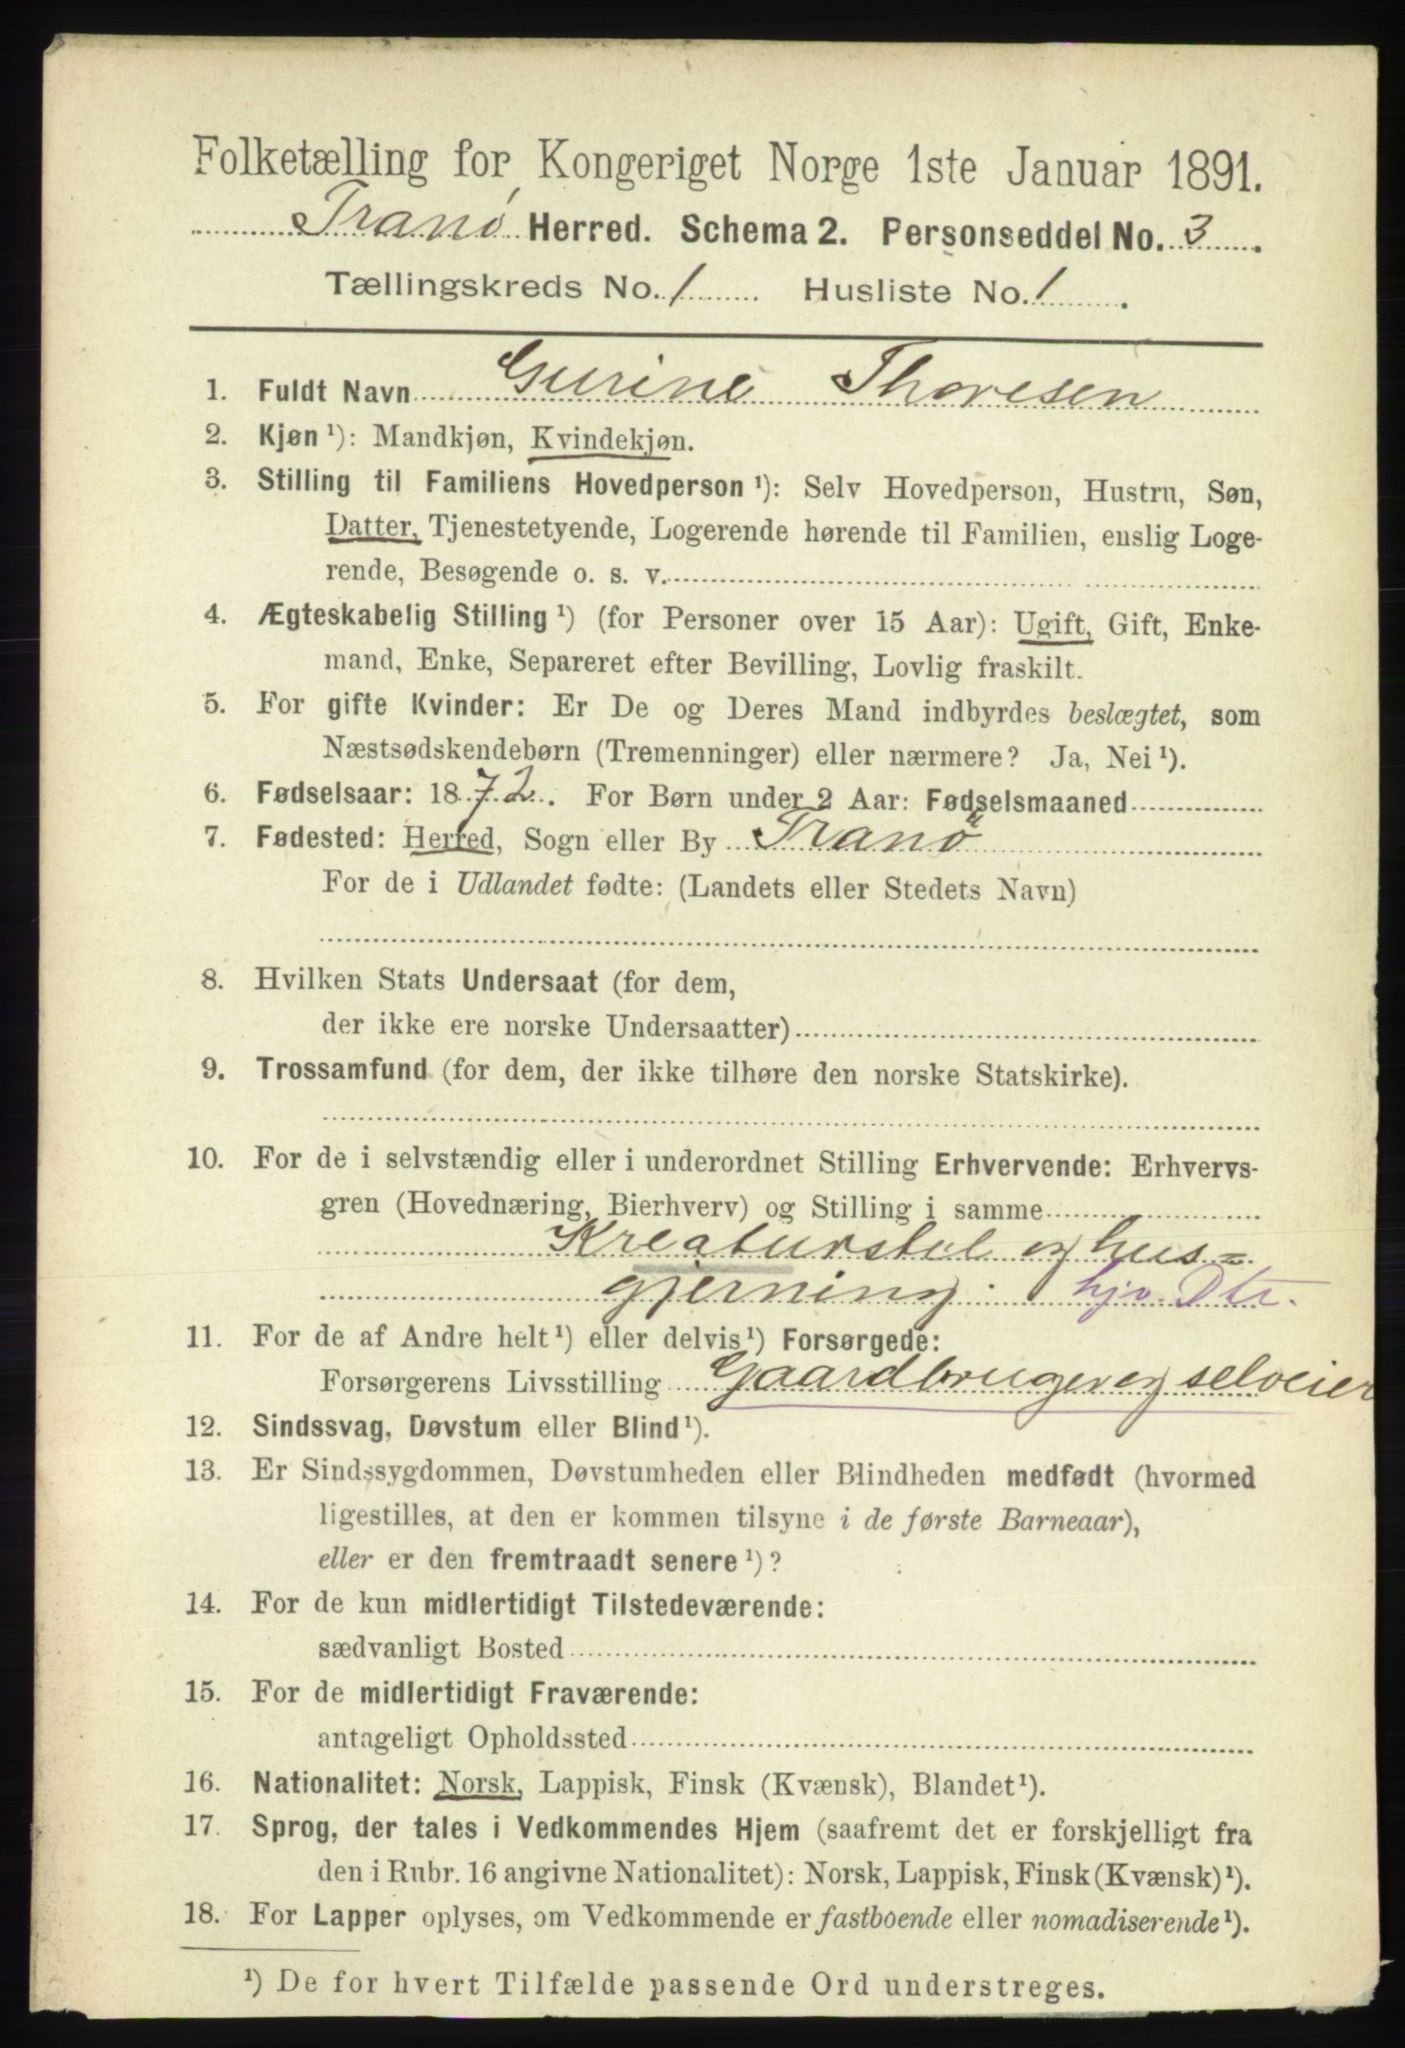 Folketælling for Kongeriget Norge 1ste Januar 1891.
Tranö Herred. Schema 2. Personseddel No. 3.
Tællingskreds No. 1 Husliste No. 1.
1. Fuldt Navn Gurine Thoresen
2. Kjøn ¹): Mandkjøn, Kvindekjøn.
3. Stilling til Familiens Hovedperson ¹): Selv Hovedperson, Hustru, Søn,
Datter, Tjenestetyende, Logerende hørende til Familien, enslig Loge-
rende, Besøgende o. s. v.
4. Ægteskabelig Stilling ¹) (for Personer over 15 Aar): Ugift, Gift, Enke-
mand, Enke, Separeret efter Bevilling, Lovlig fraskilt.
5. For gifte Kvinder: Er De og Deres Mand indbyrdes beslægtet, som
Næstsødskendebørn (Tremenninger) eller nærmere? Ja, Nei ¹).
6. Fødselsaar: 1872. For Børn under 2 Aar: Fødselsmaaned
7. Fødested: Herred, Sogn eller By Tranö
For de i Udlandet fødte: (Landets eller Stedets Navn)
8. Hvilken Stats Undersaat (for dem,
der ikke ere norske Undersaatter)
9. Trossamfund (for dem, der ikke tilhøre den norske Statskirke).
10. For de i selvstændig eller i underordnet Stilling Erhvervende: Erhvervs-
gren (Hovednæring, Bierhverv) og Stilling i samme
Kreaturstel og hus=
gjerning. hjv. Dtr.
11. For de af Andre helt ¹) eller delvis ¹) Forsørgede:
Forsørgerens Livsstilling Gaardbruger og selveier
12. Sindssvag, Døvstum eller Blind ¹).
13. Er Sindssygdommen, Døvstumheden eller Blindheden medfødt (hvormed
ligestilles, at den er kommen tilsyne i de første Barneaar),
eller er den fremtraadt senere ¹)?
14. For de kun midlertidigt Tilstedeværende:
sædvanligt Bosted
15. For de midlertidigt Fraværende:
antageligt Opholdssted
16. Nationalitet: Norsk, Lappisk, Finsk (Kvænsk), Blandet ¹).
17. Sprog, der tales i Vedkommendes Hjem (saafremt det er forskjelligt fra
den i Rubr. 16 angivne Nationalitet): Norsk, Lappisk, Finsk (Kvænsk) ¹).
18. For Lapper oplyses, om Vedkommende er fastboende eller nomadiserende ¹).
¹) De for hvert Tilfælde passende Ord understreges.